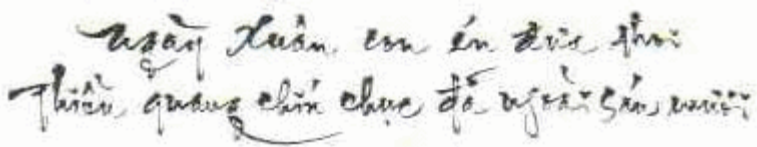 Ngày Xuân con én đưa thoi
Thiều quang chín chục đã ngoài sáu mươi